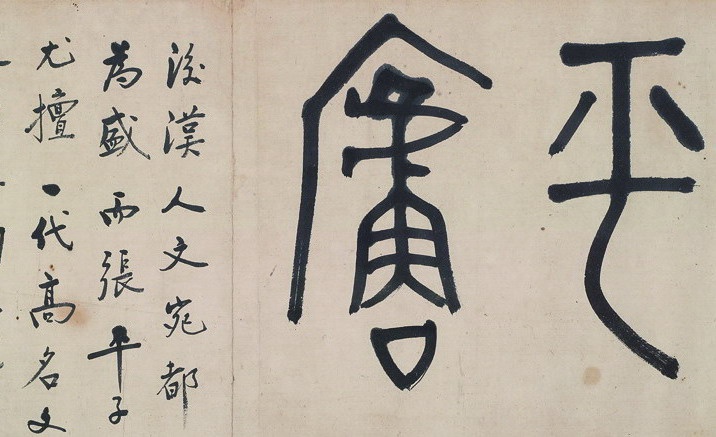 平
後漢人文宛都
為盛而張平子
尤擅一代高名文